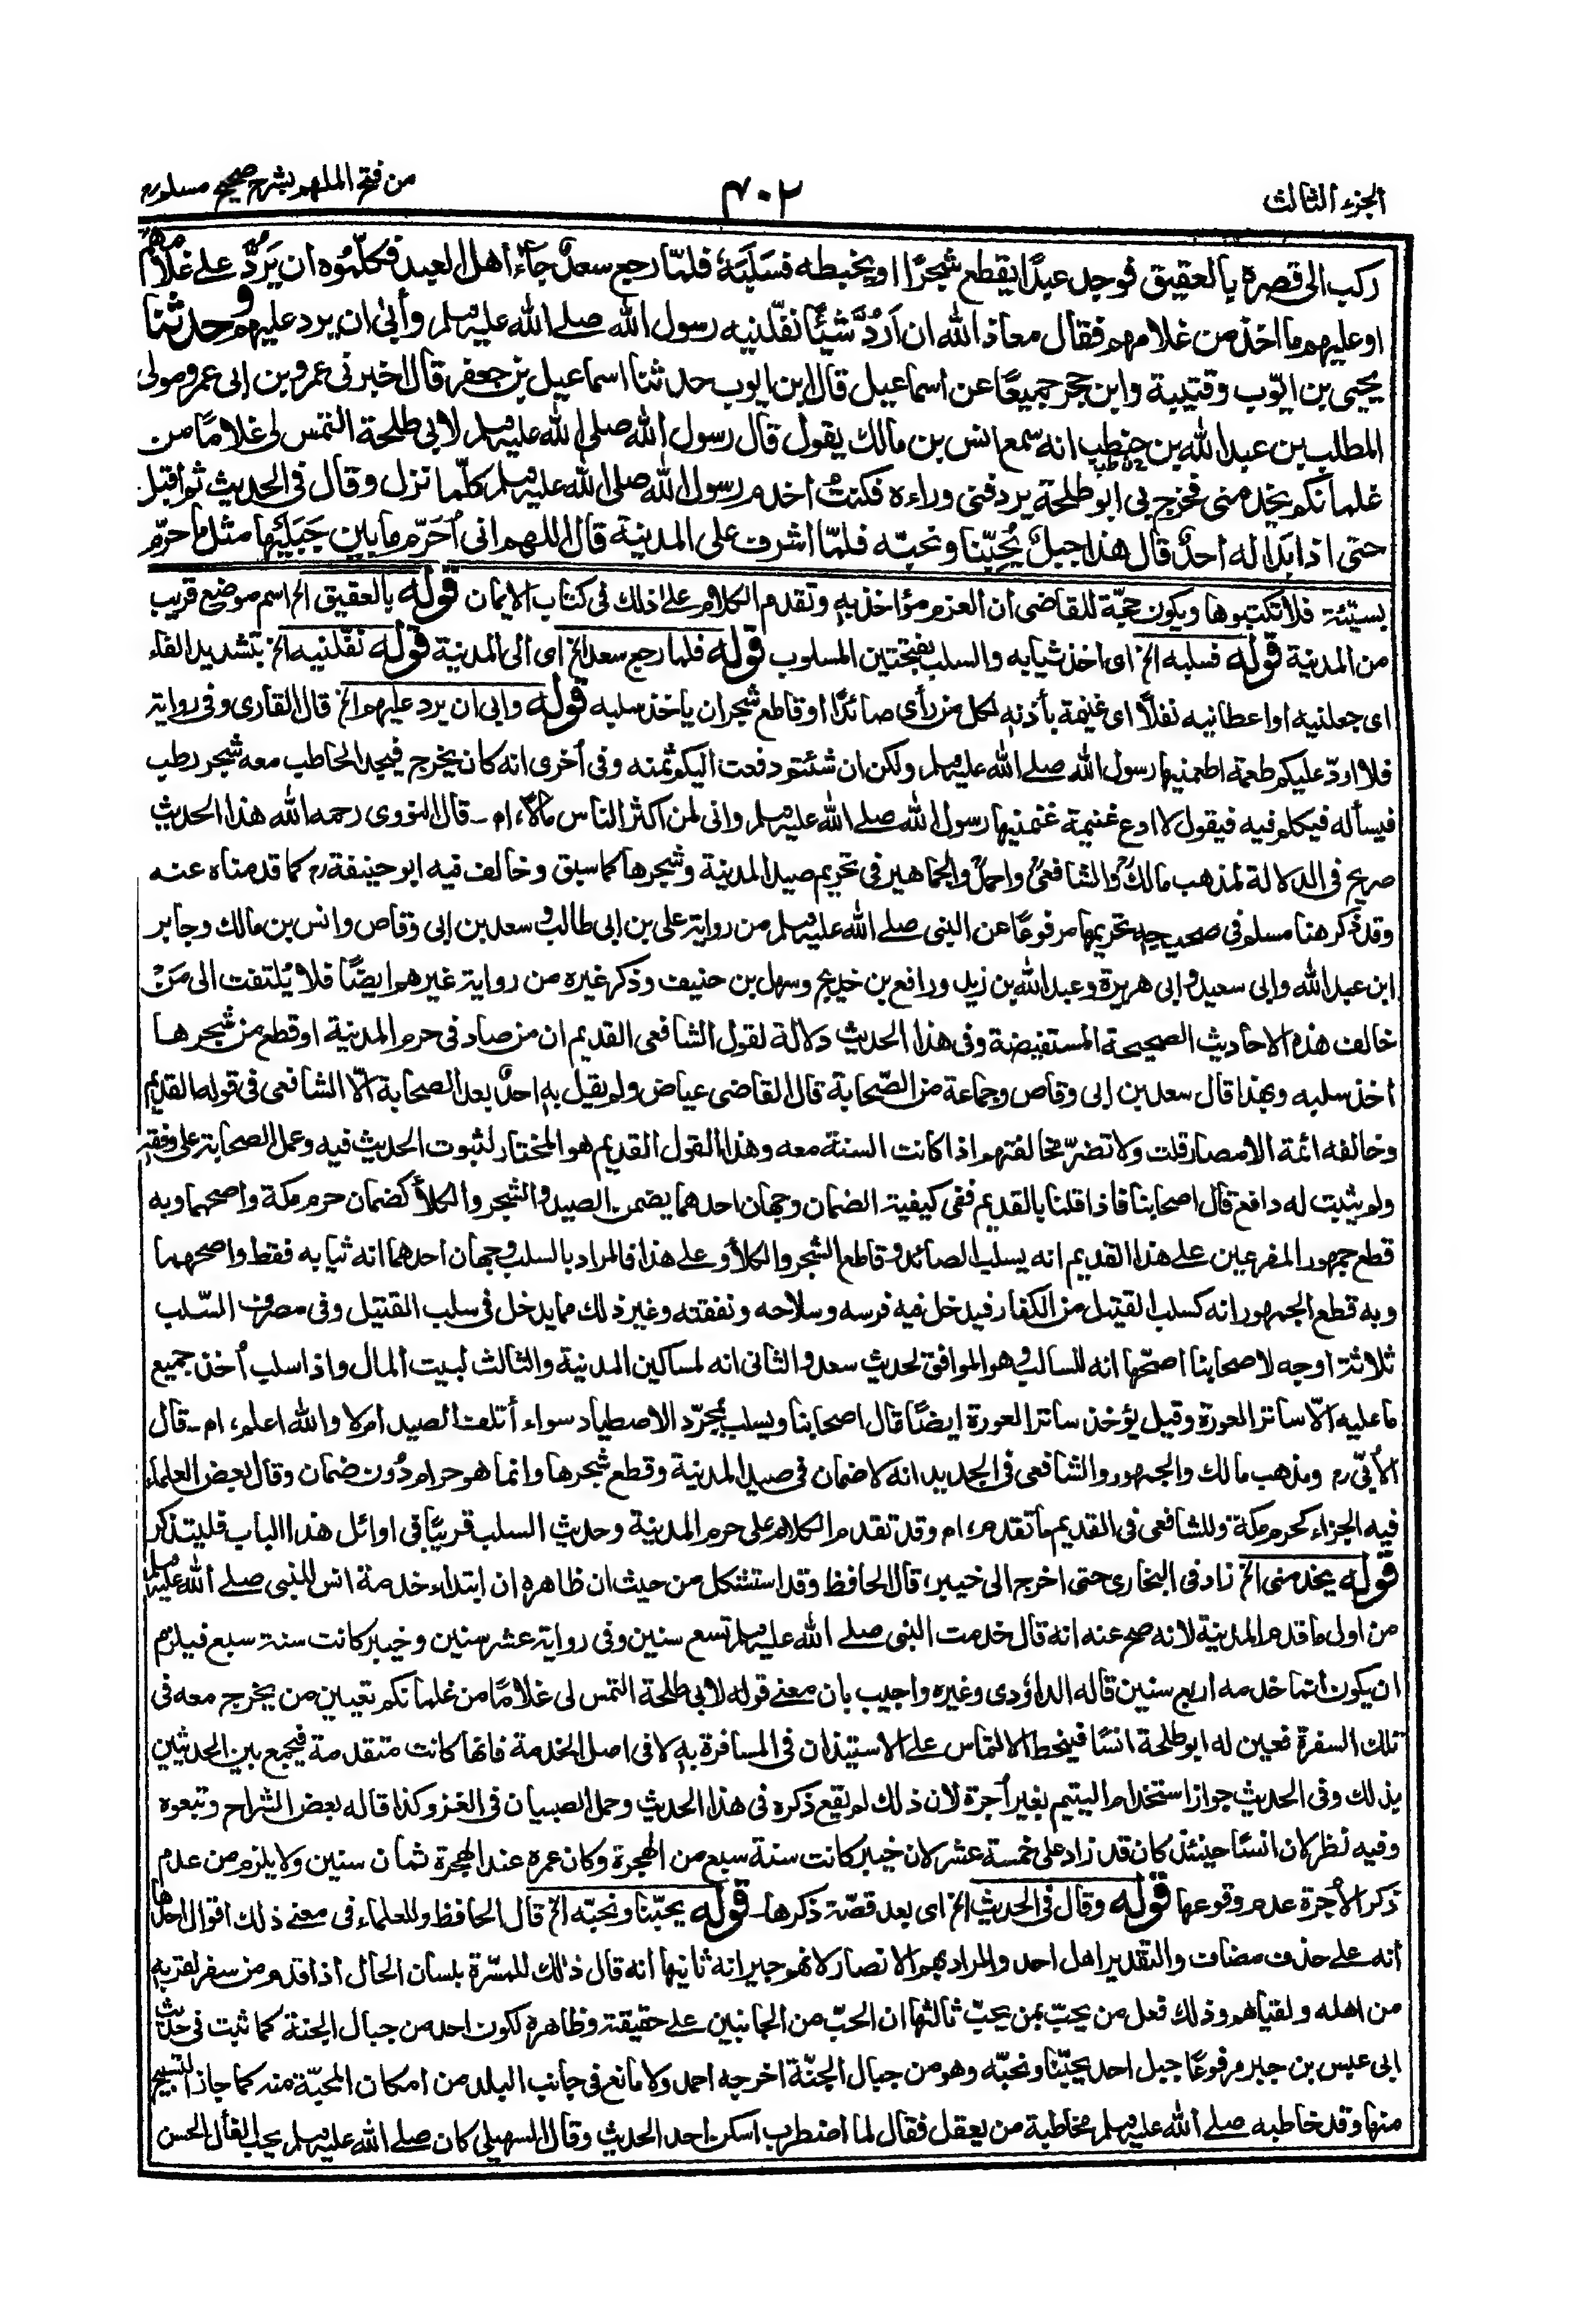 الجزء الثالث
٤٠٢
من فتح الملهم بشرح صحيح مسلم
ركب الى قصره بالعقيق فوجد عبدًا يقطع شجرًا او يخبطه فسلبَه، فلمّا رجع سعدٌ جاءَ أهل العبد فكلّموْه ان يَرُدّ على غلامهم
او عليهم ما اخذ من غلامهم فقال معاذ الله ان اَرُدَّ شيئًا نفّلنيه رسول الله صلى الله عليه وسلم وأبٰى ان يرد عليهم وحدثنا
يحيى بن ايّوب وقتيبة وابن حجر جميعًا عن اسماعيل قال ابن ايوب حدثنا اسماعيل بن جعفر قال اخبرنى عمرو بن ابى عمرو مولى
المطلب بن عبد الله بن حنطب انه سمع انس بن مالك يقول قال رسول الله صلى الله عليه وسلم لابى طلحة التمس لى غلامًا من
غلمانكم يخدمنى فخرج بى ابو طلحة يردفنى وراءه فكنتُ اخدم رسول الله صلى الله عليه وسلم كلّما نزل وقال فى الحديث ثم اقبل
حتى اذا بَدا له احدٌ قال هذا جبلٌ يُحِبّنا ونحبّه فلمّا اشرف على المدينة قال اللهم انى اُحَرّم ما بين جَبَلَيْها مثل ما حرّم
بسيّئة فلا تكتبوها ويكون حجّة للقاضى أن العزم مؤاخذ به وتقدم الكلام على ذلك فى كتاب الايمان قوله بالعقيق الخ اسم موضع قريب
من المدينة قوله فسلبه الخ اى اخذ ثيابه والسلب بفتحتين المسلوب قوله فلما رجع سعد الخ اى الى المدينة قوله نفّلنيه الخ بتشديد الفاء
اى جعلنيه او اعطانيه نفلًا اى غنيمة باذنه لكل من رأى صائدًا او قاطع شجر ان ياخذ سلبه قوله وابى ان يرد عليهم الخ قال القارى وفى رواية
فلا اردّ عليكم طعمة اطعمنيها رسول الله صلى الله عليه وسلم ولكن ان شئتم دفعت اليكم ثمنه وفى أخرى انه كان يخرج فيجد الحاطب معه شجر رطب
فيسأله فيكلم فيه فيقول لا ادع غنيمة غنمنيها رسول الله صلى الله عليه وسلم وانى لمن اكثر الناس مالًا، ام ـ قال النووى رحمه الله هذا الحديث
صريح فى الدلالة لمذهب مالكؒ والشافعىؒ واحمدؒ والجماهير فى تحريم صيد المدينة وشجرها كما سبق وخالف فيه ابو حنيفةؒ كما قدمناه عنه
وقد ذكر هنا مسلم فى صحيحه تحريمها مرفوعًا عن النبى صلى الله عليه وسلم من رواية على بن ابى طالب و سعد بن ابى وقاص وانس بن مالك وجابر
ابن عبد الله وابى سعيد وابى هريرة وعبد الله بن زيد ورافع بن خديج وسهل بن حنيف وذكر غيره من رواية غيرهم ايضًا فلا يُلتفت الى مَنْ
خالف هذه الاحاديث الصحيحة المستفيضة وفى هذا الحديث دلالة لقول الشافعى القديم ان من صاد فى حرم المدينة او قطع من شجرها
أخذ سلبه وبهذا قال سعد بن ابى وقاص وجماعة من الصّحابة قال القاضى عياض ولم يقل به احدٌ بعد الصحابة الّا الشافعى فى قوله القديم
وخالفه ائمة الامصار قلت ولا تضرّ مخالفتهم اذا كانت السنة معه وهذا القول القديم هو المختار لثبوت الحديث فيه وعمل الصحابة على وفقه
ولم يثبت له دافع قال اصحابنا فاذا قلنا بالقديم ففى كيفية الضمان وجهان احدهما يضمن الصيد والشجر والكلأ كضمان حرم مكة واصحهما وبه
قطع جمهور المفرعين على هذا القديم انه يسلب الصائد وقاطع الشجر والكلأ وعلى هذا فالمراد بالسلب وجهان احدهما انه ثيابه فقط واصحهما
وبه قطع الجمهور انه كسلب القتيل من الكفار فيدخل فيه فرسه وسلاحه ونفقته وغير ذلك مما يدخل فى سلب القتيل وفى مصرف السّلب
ثلاثة اوجه لاصحابنا اصحّها انه للسالب وهو الموافق لحديث سعد و الثانى انه لمساكين المدينة والثالث لبيت المال واذا سلب أخذ جميع
ما عليه الّا ساتر العورة وقيل يؤخذ ساتر العورة ايضًا قال اصحابنا ويسلب بمجرّد الاصطياد سواء أتلف الصيد ام لا والله اعلم، ام ـ قال
الأبّىؒ ومذهب مالك والجمهور والشافعى فى الجديد انه لا ضمان فى صيد المدينة وقطع شجرها وانما هو حرام دُون ضمان وقال بعض العلماء
فيه الجزاء كحرم مكة وللشافعى فى القديم ما تقدم، ام وقد تقدم الكلام على حرم المدينة وحديث السلب قريبًا فى اوائل هذا الباب فليتذكر
قوله يخدمنى الخ زاد فى البخارى حتى اخرج الى خيبر، قال الحافظ وقد استشكل من حيث ان ظاهره ان ابتداء خدمة انس للنبى صلى الله عليه وسلم
من اول ما قدم المدينة لانه صح عنه انه قال خدمت النبى صلى الله عليه وسلم تسع سنين وفى رواية عشر سنين وخيبر كانت سنة سبع فيلزم
ان يكون انما خدمه اربع سنين قاله الداؤدى وغيره واجيب بان معنى قوله لابى طلحة التمس لى غلامًا من غلمانكم تعيين من يخرج معه فى
تلك السفرة فعين له ابو طلحة انسًا فينحط الالتماس على الاستيذان فى المسافرة به لا فى اصل الخدمة فانها كانت متقدمة فيجمع بين الحديثين
بذلك وفى الحديث جواز استخدام اليتيم بغير أجرة لان ذلك لم يقع ذكره فى هذا الحديث وحمل الصبيان فى الغزو كذا قاله بعض الشراح وتبعوه
وفيه نظر لان انسًا حينئذ كان قد زاد على خمسة عشر لان خيبر كانت سنة سبع من الهجرة وكان عمره عند الهجرة ثمان سنين ولا يلزم من عدم
ذكر الأجرة عدم وقوعها قوله وقال فى الحديث الخ اى بعد قصّة ذكرها ـ قوله يحبّنا ونحبّه الخ قال الحافظ وللعلماء فى معنى ذلك اقوال احدها
أنه على حذف مضاف والتقدير اهل احد والمراد بهم الانصار لانهم جيرانه ثانيها انه قال ذلك للمسّرة بلسان الحال اذا قدم من سفر لقربه
من اهله ولقياهم وذلك فعل من يحبّ بمن يحبّ ثالثها ان الحبّ من الجانبين على حقيقته وظاهره لكون احد من جبال الجنة كما ثبت فى حديث
ابى عبس بن جبر مرفوعًا جبل احد يحبّنا ونحبّه وهو من جبال الجنّة اخرجه احمد ولا مانع فى جانب البلد من امكان المحبّة منه كما جاز التسبيح
منها وقد خاطبه صلى الله عليه وسلم مخاطبة من يعقل فقال لما اضطرب اسكن احد الحديث وقال السهيلى كان صلى الله عليه وسلم يحب الفأل الحسن